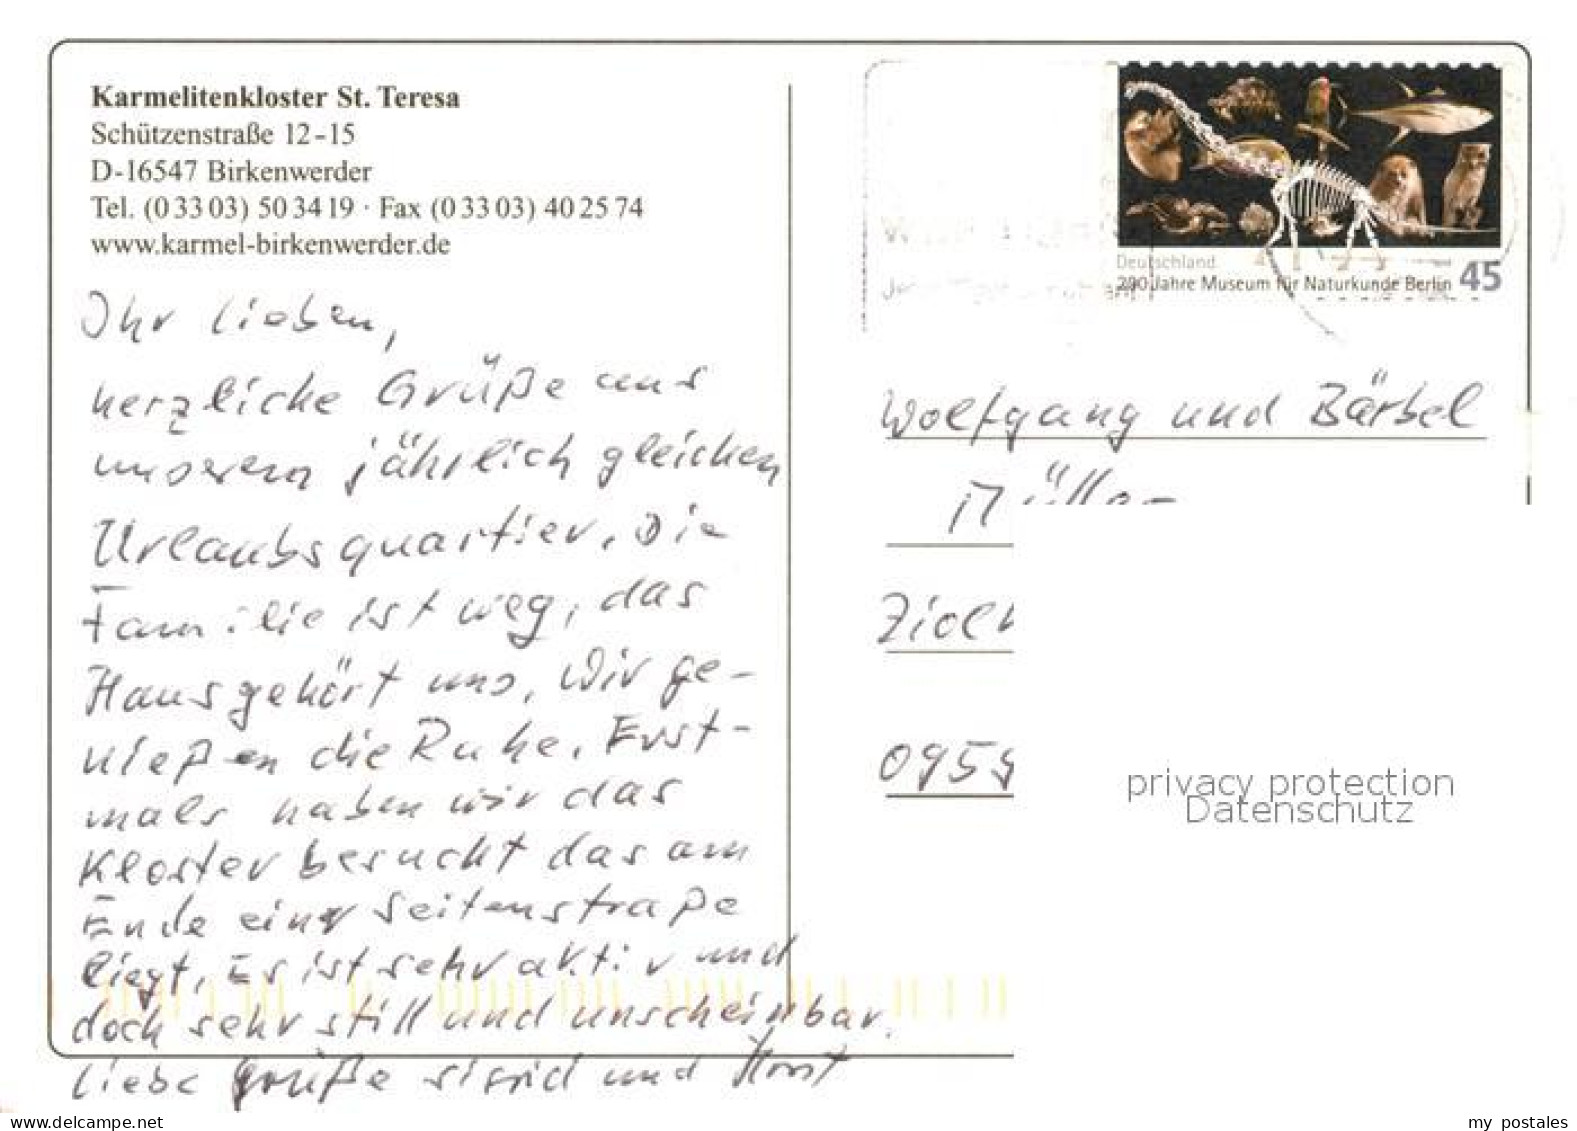 Karmelitenkloster St. Teresa
Schützenstraße 12-15
D-16547 Birkenwerder
Tel. (0 33 03) 50 34 19 · Fax (0 33 03) 40 25 74
www.karmel-birkenwerder.de
Ihr Lieben,
herzliche Grüße aus
unserem jährlich gleichen
Urlaubsquartier. Die
Familie ist weg, das
Haus gehört uns. Wir ge-
nießen die Ruhe. Erst-
mals haben wir das
Kloster besucht das am
Ende einer Seitenstraße
liegt. Es ist sehr aktiv und
doch sehr still und unscheinbar.
Liebe Grüße Sigrid und Horst
Deutschland
200 Jahre Museum für Naturkunde Berlin 45
Wolfgang und Bärbel
Müller
0959
privacy protection
Datenschutz
www.delcampe.net
my postales